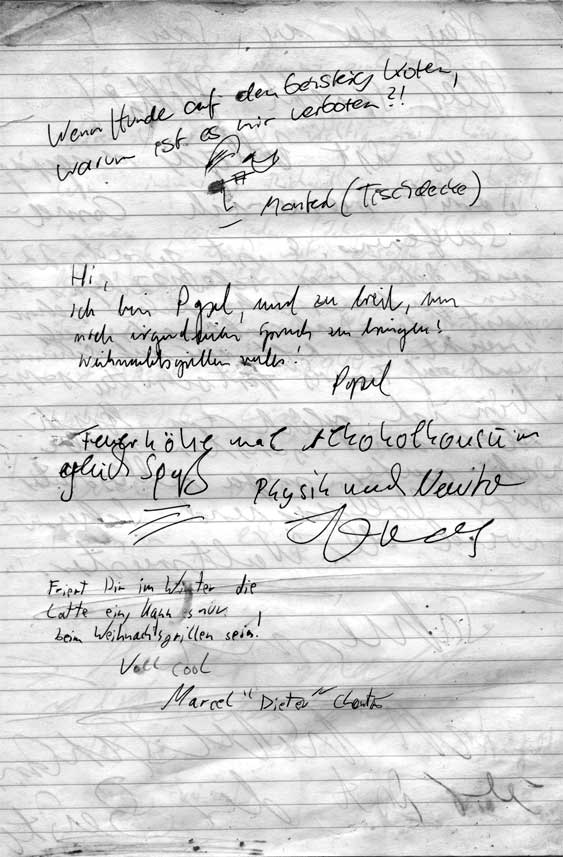 Wenn Hunde auf den Gehsteig koten,
warum ist es mir verboten?!
(Tischdecke)
Hi,
ich bin Popel, und zu breit, um
noch irgendeinen Spruch zu bringen!
Weihnachtsgrillen rulls!
Popel
Feuerhöhe mal Alkoholkonsum
gleich Spaß
Physik und
Friert Dir im Winter die
Latte ein, kann's nur
beim Weihnachtsgrillen sein!
Voll cool
Marcel "Dieter"